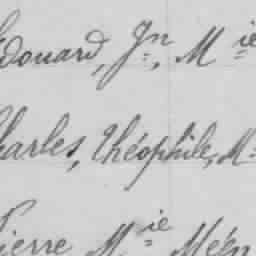 Edouard, Jn, Mie
Charles, Théophile, M
Pierre Mie Méen